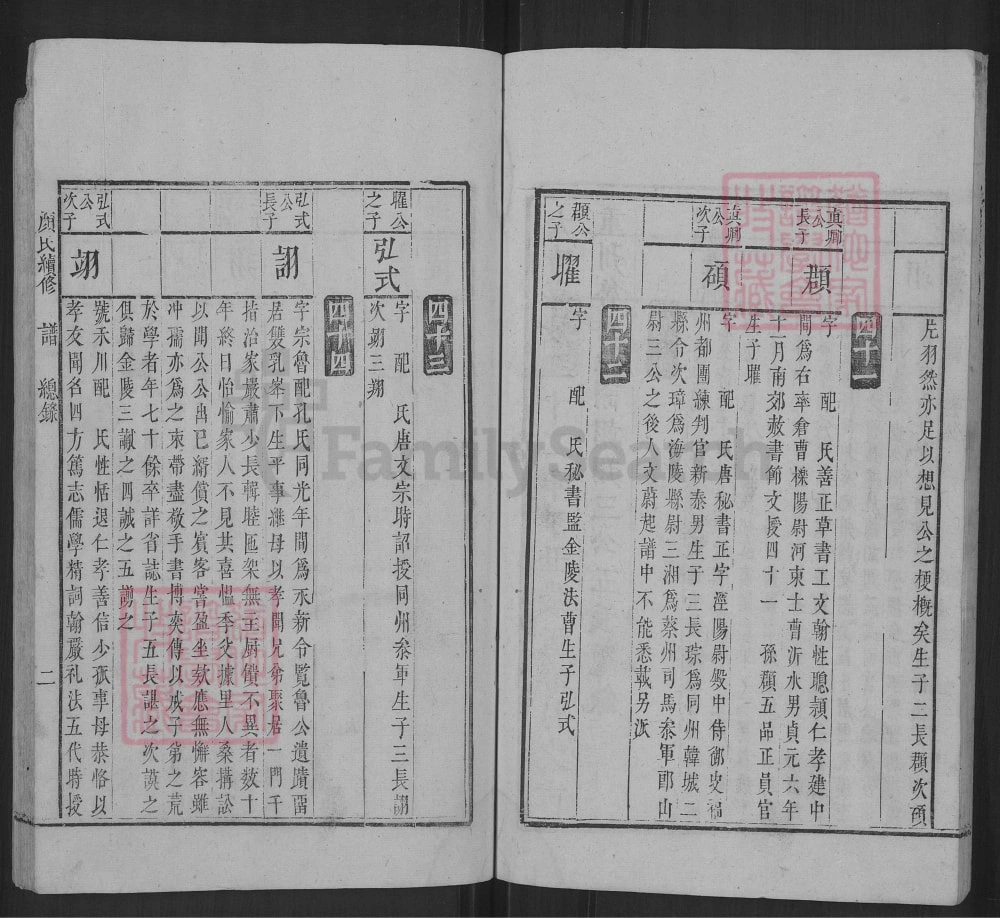 片羽然亦足以想見公之梗概矣生子二長頵次頊
四十一
真卿公長子
頵
字　配　氏善正草書工文翰性聰頴仁孝建中
間爲右率倉曹櫟陽尉河東士曹沂水男貞元六年
十一月南郊赦書節文授四十一　孫頵五品正員官
生子㬢
真卿公次子
碩
字　配　氏唐秘書正字涇陽尉殿中侍御史福
州都團練判官新泰男生子三長琮爲同州韓城二
縣令次璋爲海陵縣尉三湘爲蔡州司馬叅軍郿山
尉三公之後人文蔚起譜中不能悉載另派
四十二
頵公之子
㬢
字　配　氏秘書監金陵法曹生子弘式
四十三
㬢公之子
弘式
字　配　氏唐文宗時詔授同州叅軍生子三長詡
次翊三翔
四十四
弘式公長子
詡
字宗魯配孔氏同光年間爲永新令覧魯公遺蹟畱
居雙乳峯下生平事繼母以孝聞兄弟聚居一門千
指治家嚴肅少長輯睦匜架無主厨饌不異者数十
年終日怡愉家人不見其喜愠季父據里人桑搆訟
以聞公公出已縎償之賓客嘗盈坐欵應無懈容雖
冲孺亦爲之束帶盡敬手書博奕傳以戒子弟之荒
於學者年七十餘卒詳省誌生子五長諶之次謨之
俱歸金陵三諏之四誠之五謝之
弘式公次子
翊
號禾川配　氏性恬退仁孝善信少孤事母恭恪以
孝友聞名四方篤志儒學精詞翰嚴礼法五代時授
顔氏續修　譜　總錄　二
FamilySearch